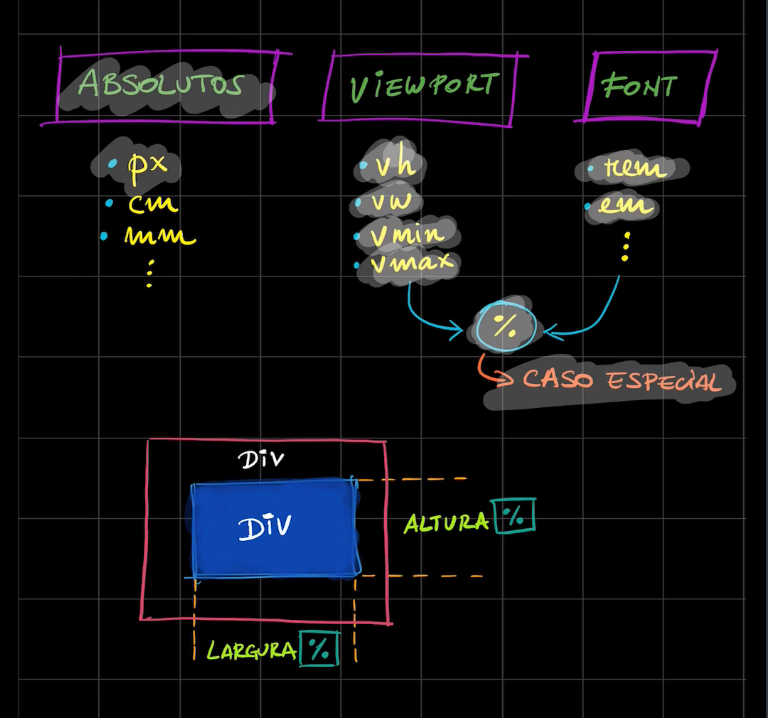 ABSOLUTOS
• px
• cm
• mm
⋮
VIEWPORT
• vh
• vw
• vmin
• vmax
FONT
• rem
• em
⋮
%
CASO ESPECIAL
DIV
DIV
ALTURA %
LARGURA %